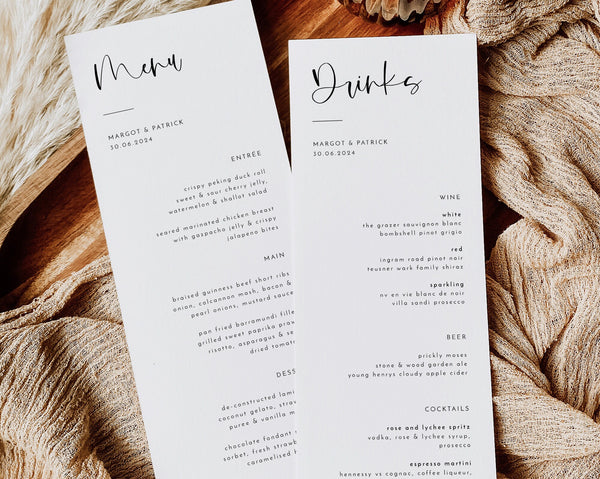 Menu
MARGOT & PATRICK
30.06.2024
ENTREE
crispy peking duck roll
sweet & sour cherry jelly,
watermelon & shallot salad
seared marinated chicken breast
with gazpacho jelly & crispy
jalapeno bites
MAIN
braised guinness beef short ribs
onion, colcannon mash, bacon &
pearl onions, mustard sauce
pan fried barramundi
grilled sweet paprika
risotto, asparagus &
dried
de-constructed
coconut gelato,
puree & vanilla
chocolate fondant
sorbet, fresh
caramelised
Drinks
MARGOT & PATRICK
30.06.2024
WINE
white
the grazer sauvignon blanc
bombshell pinot grigio
red
ingram road pinot noir
teusner wark family shiraz
sparkling
nv en vie blanc de noir
villa sandi prosecco
BEER
prickly moses
stone & wood garden ale
young henrys cloudy apple cider
COCKTAILS
rose and lychee spritz
vodka, rose & lychee syrup,
prosecco
espresso martini
hennessy vs cognac, coffee liqueur,